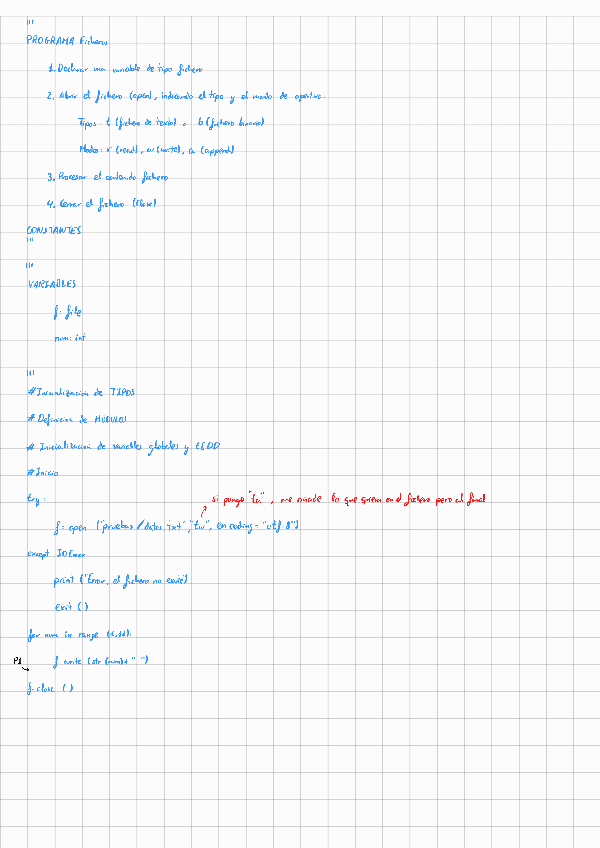 '''
PROGRAMA Ficheros
1. Declarar una variable de tipo fichero
2. Abrir el fichero (open), indicando el tipo y el modo de apertura.
Tipos: t (fichero de texto) o b (fichero binario)
Modos: r (read), w (write), a (append)
3. Procesar el contenido fichero
4. Cerrar el fichero (close)
CONSTANTES
'''
'''
VARIABLES
f: file
num: int
'''
#Inicialización de TIPOS
# Definición de MÓDULOS
# Inicialización de variables globales y EEDD
#Inicio
try:
si pongo "ta", me añade lo que quiera en el fichero pero al final
f= open ("pruebas/datos.txt","tw", encoding="utf-8")
except IOError
print ("Error, el fichero no existe")
exit ()
for num in range (1,11):
P1
f.write (str(num)+" ")
f.close ()